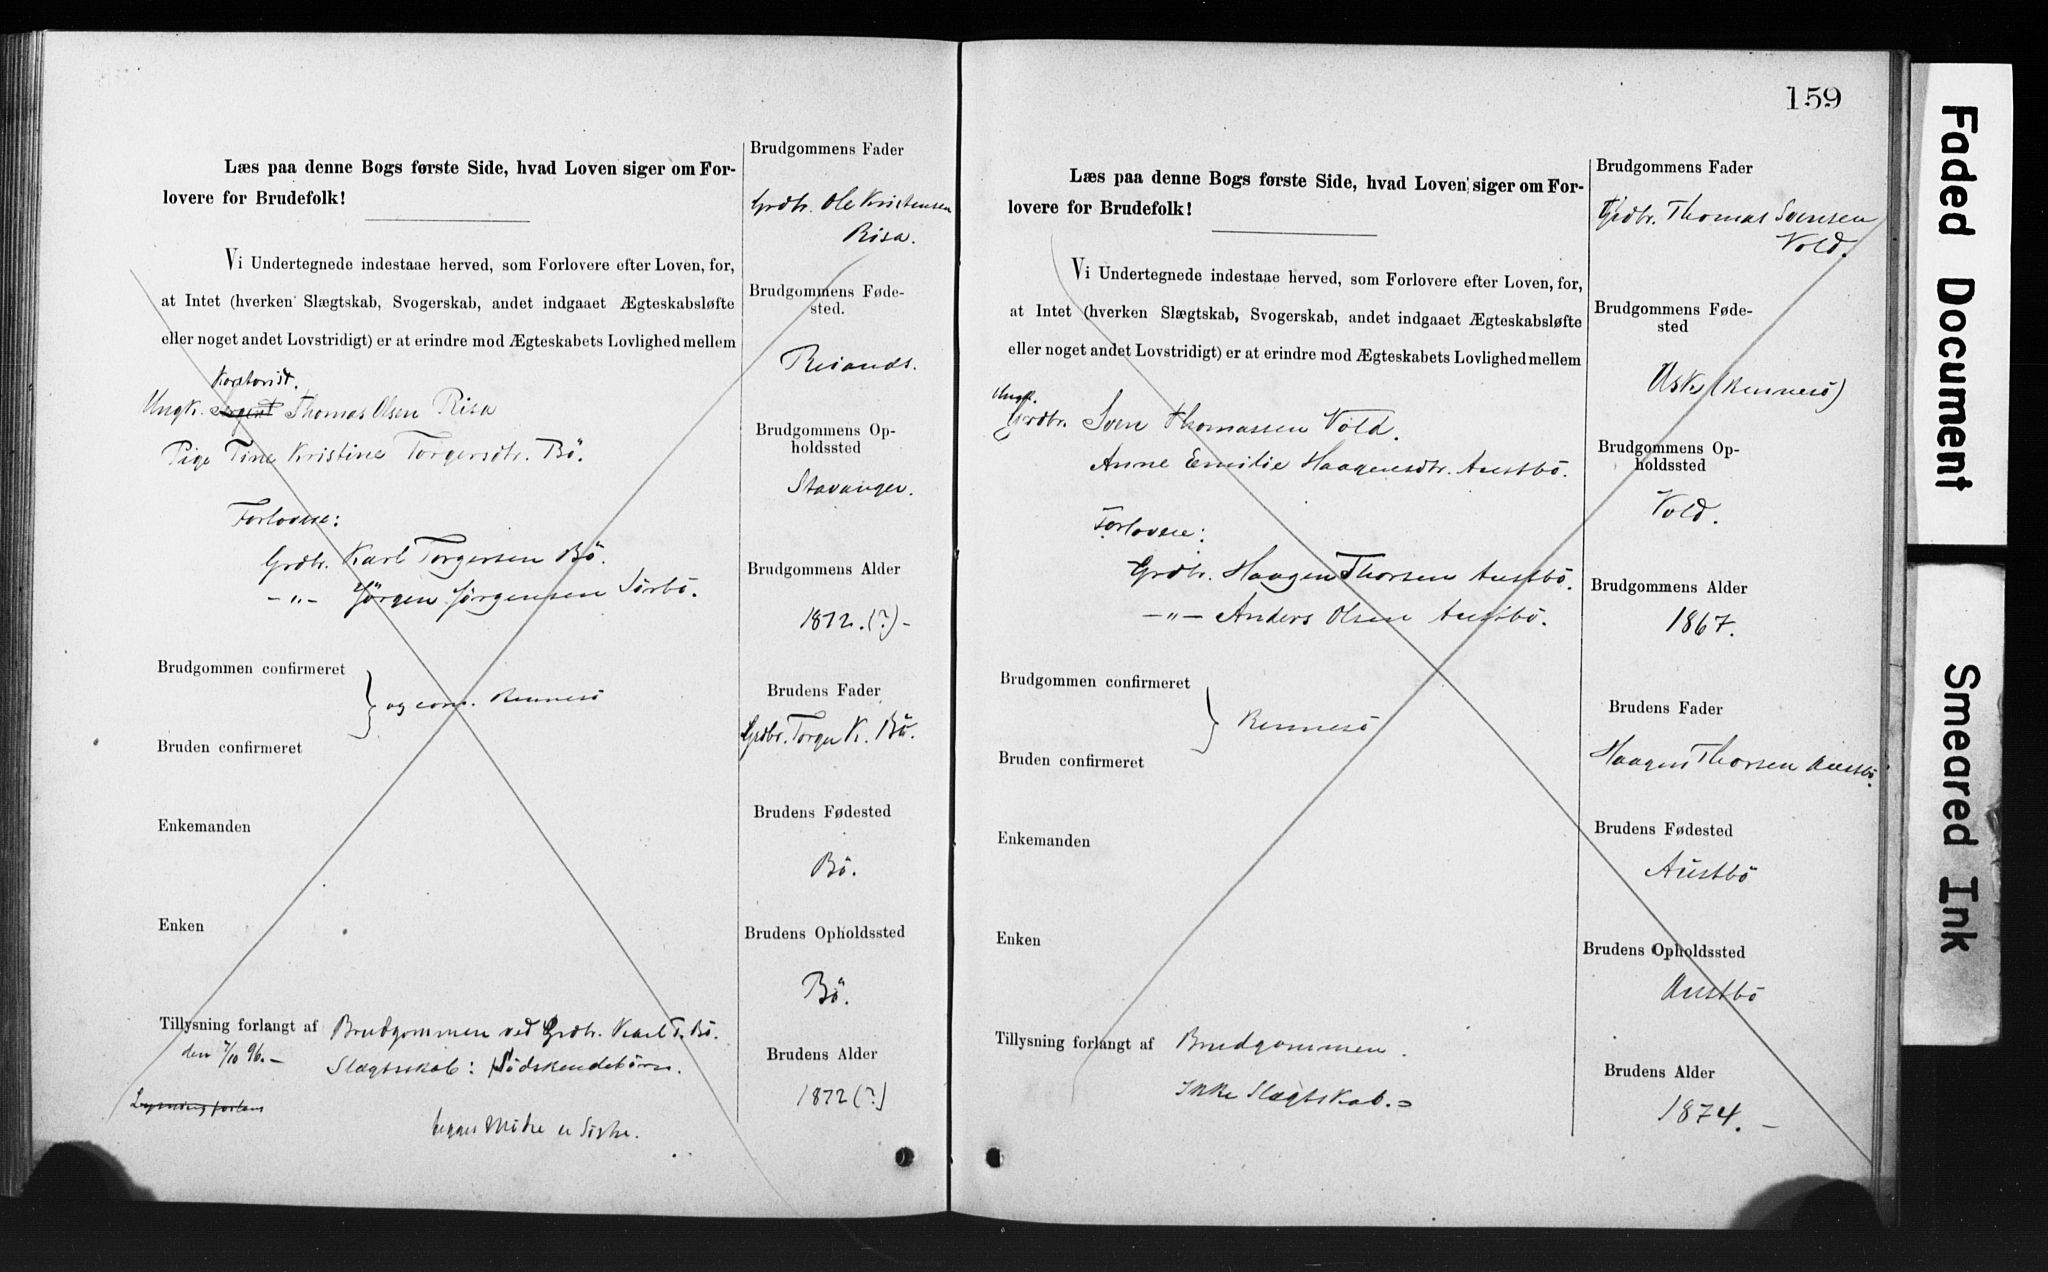 Læs paa denne Bogs første Side, hvad Loven siger om For-
lovere for Brudefolk!
Vi Undertegnede indestaae herved, som Forlovere efter Loven, for,
at Intet (hverken Slægtskab, Svogerskab, andet indgaaet Ægteskabsløfte
eller noget andet Lovstridigt) er at erindre mod Ægteskabets Lovlighed mellem
Ungk. Thomas Olsen Risa
Pige Tine Kristine Torgersdtr. Bö.
Forlovere:
Grdbr. Karl Torgersen Bö.
-"- Jörgen Jörgensen Sörbö.
Brudgommen confirmeret
og conf. Rennesö
Bruden confirmeret
Enkemanden
Enken
Tillysning forlangt af Brudgommen ved Grdbr. Karl T. Bö.
den 7/10 96.-
Slægtsskab: Södskendebörn.
begges Mödre er Söstre.
Brudgommens Fader
Grdbr. Ole Kristensen
Risa.
Brudgommens Føde-
sted.
Brudgommens Op-
holdssted
Stavanger.
Brudgommens Alder
1872.(?)-
Brudens Fader
Grdbr. Torger K. Bö.
Brudens Fødested
Bö.
Brudens Opholdssted
Bö.
Brudens Alder
1872(?)
159
Læs paa denne Bogs første Side, hvad Loven siger om For-
lovere for Brudefolk!
Vi Undertegnede indestaae herved, som Forlovere efter Loven, for,
at Intet (hverken Slægtskab, Svogerskab, andet indgaaet Ægteskabsløfte
eller noget andet Lovstridigt) er at erindre mod Ægteskabets Lovlighed mellem
Ungk.
Grdbr. Sven Thomassen Vold.
Anne Emilie Haagensdtr. Austbö.
Forlovere:
Grdbr. Haagen Thorsen Austbö.
-"- Anders Olsen Austbö.
Brudgommen confirmeret
Rennesö
Bruden confirmeret
Enkemanden
Enken
Tillysning forlangt af Brudgommen.
Ikke Slægtskab.=
Brudgommens Fader
Grdbr. Thomas Svensen
Vold.
Brudgommens Føde-
sted
Usk (Rennesö)
Brudgommens Op-
holdssted
Vold.
Brudgommens Alder
1867.
Brudens Fader
Haagen Thorsen Austbö.
Brudens Fødested
Austbö
Brudens Opholdssted
Austbö
Brudens Alder
1874.-
Faded Document
Smeared Ink